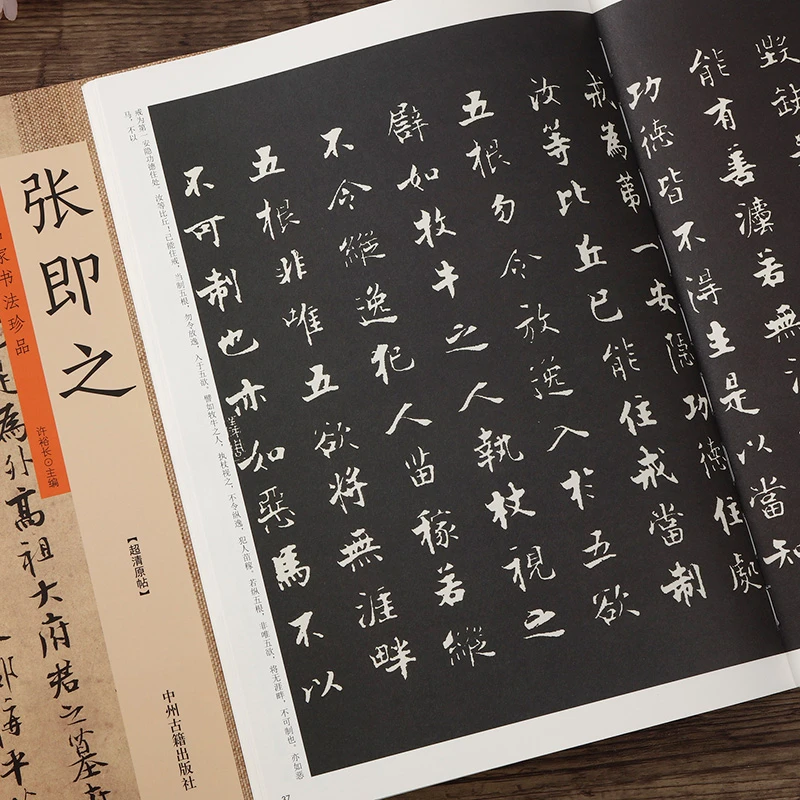 毀缺
能有善灋若無
功德皆不得生是以當知
戒為第一安隱功德住處
汝等比丘已能住戒當制
五根勿令放逸入於五欲
譬如牧牛之人執杖視之
不令縱逸犯人苗稼若縱
五根非唯五欲將無涯畔
不可制也亦如惡馬不以
戒为第一安隐功德住处。汝等比丘,已能住戒,当制五根,勿令放逸,入于五欲。譬如牧牛之人,执杖视之,不令纵逸,犯人苗稼。若纵五根,非唯五欲,将无涯畔,不可制也。亦如恶
马,不以
37
张即之
家书法珍品
许裕长⊙主编
【超清原帖】
中州古籍出版社
為外高祖大府君之墓